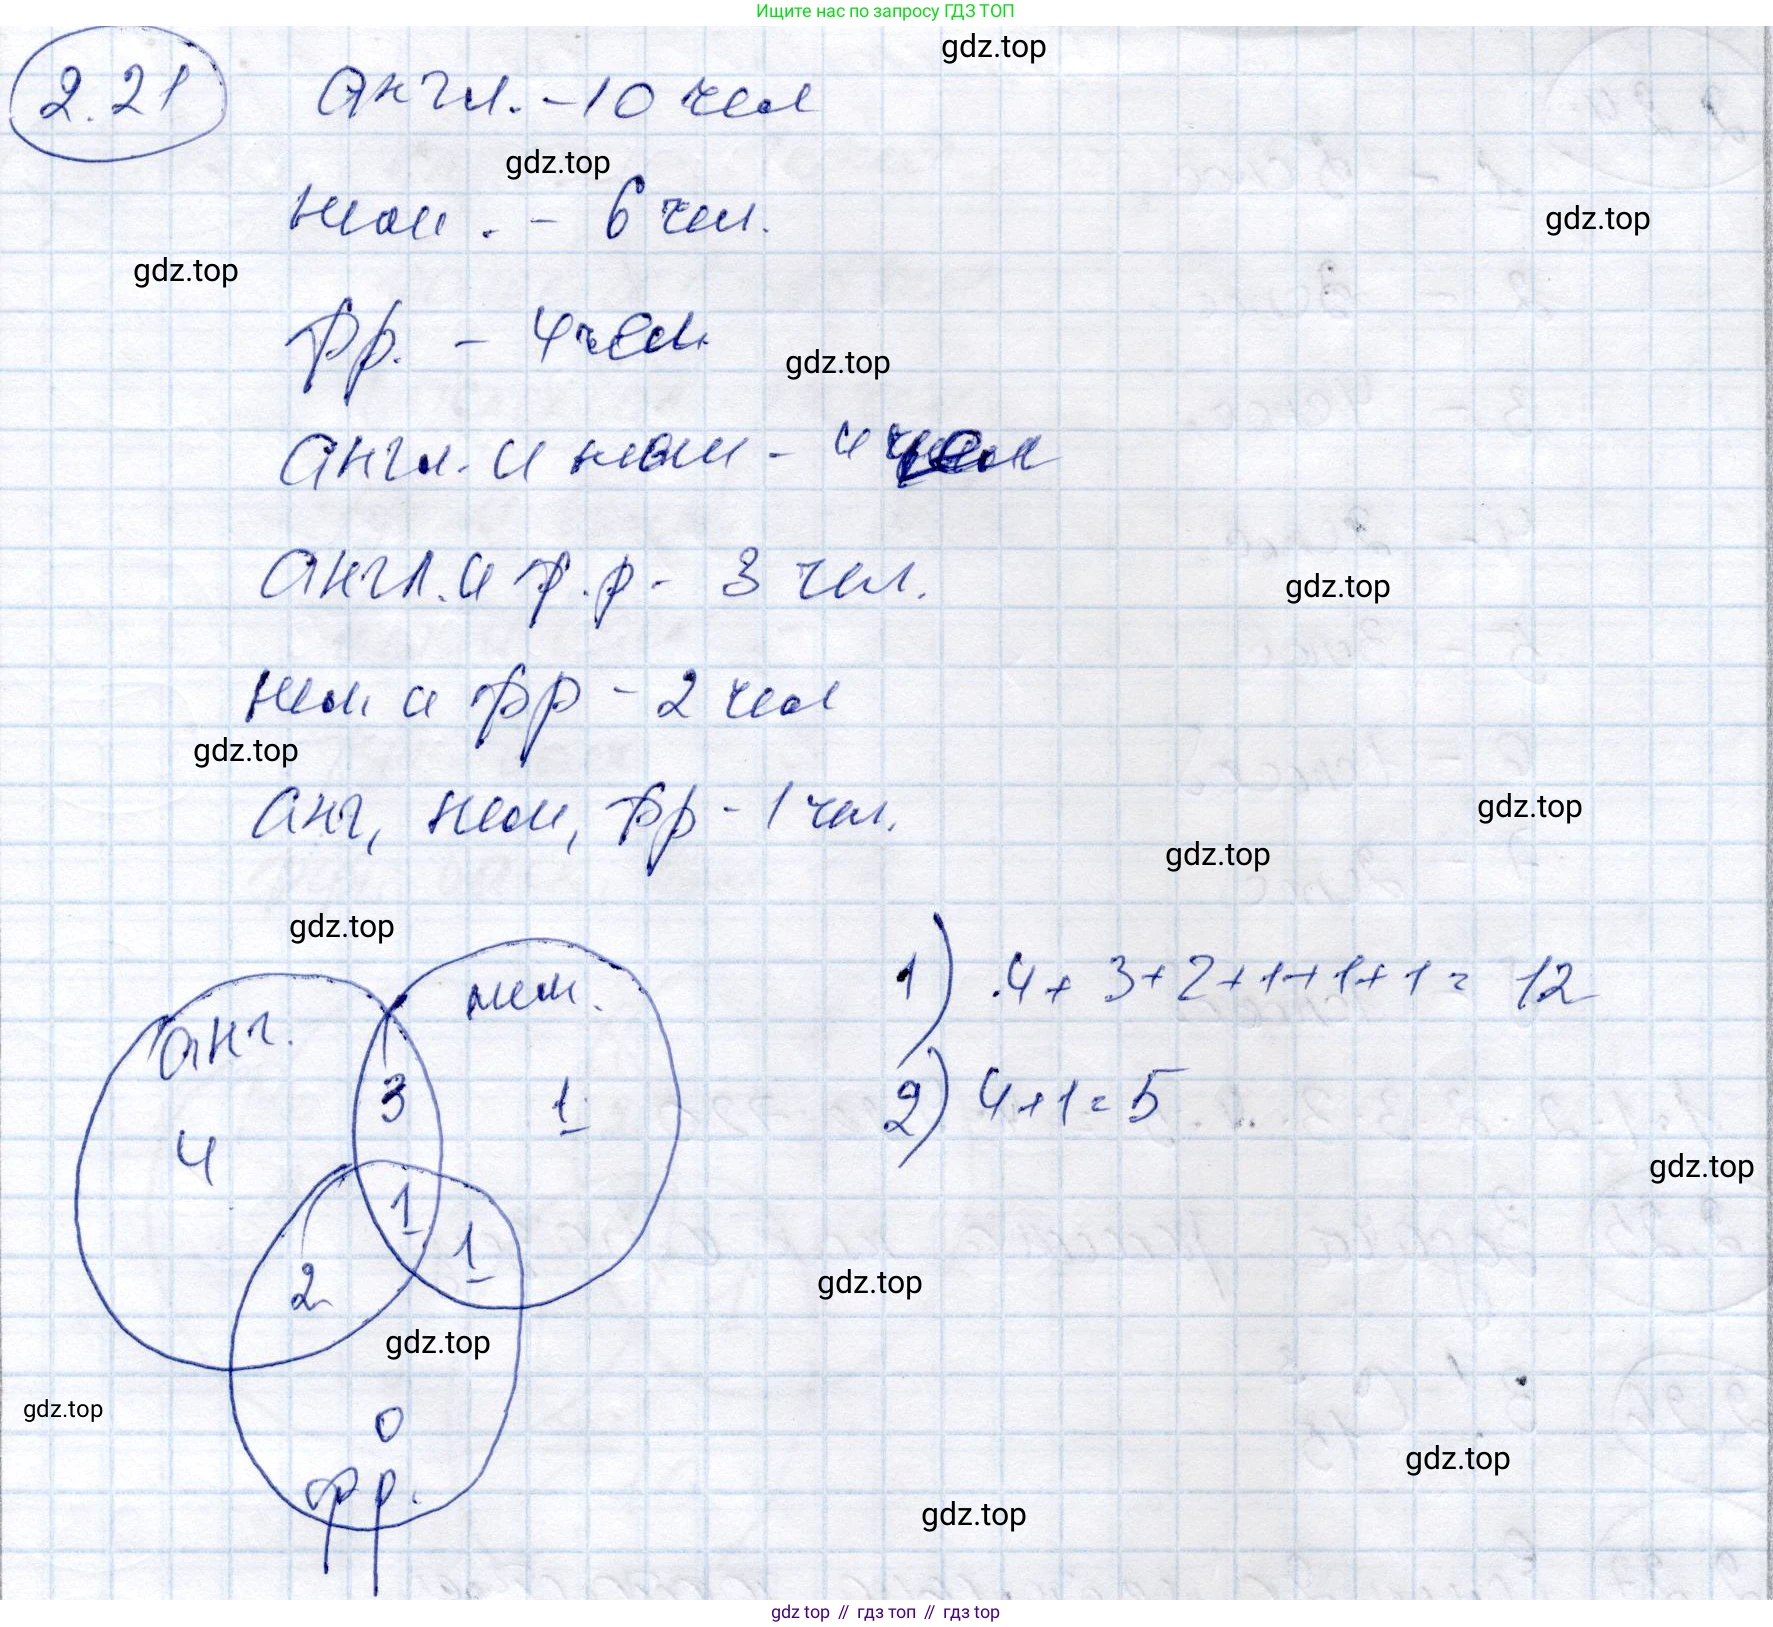 Ищите нас по запросу ГДЗ ТОП
gdz.top
2.21
англ. - 10 чел
gdz.top
нем. - 6 чел.
gdz.top
gdz.top
фр. - 4 чел.
gdz.top
англ. и нем - 4 чел
англ. и фр - 3 чел.
gdz.top
нем и фр - 2 чел
gdz.top
анг, нем, фр - 1 чел.
gdz.top
gdz.top
gdz.top
анг.
нем.
1) 4 + 3 + 2 + 1 + 1 + 1 = 12
3
1
2) 4 + 1 = 5
4
gdz.top
1
1
2
gdz.top
gdz.top
gdz.top
0
gdz.top
фр.
gdz.top
gdz top // гдз топ // гдз top